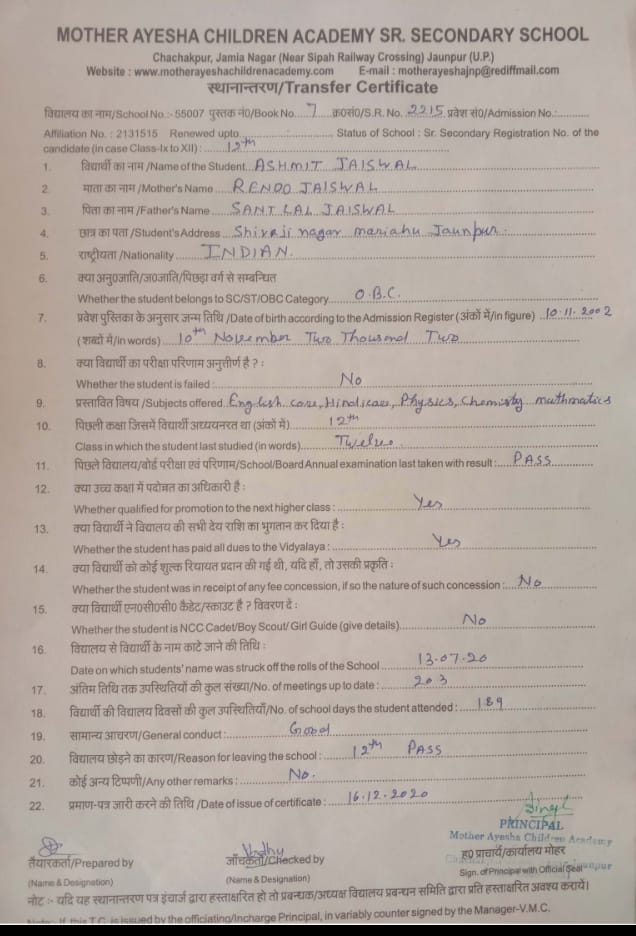 MOTHER AYESHA CHILDREN ACADEMY SR. SECONDARY SCHOOL
Chachakpur, Jamia Nagar (Near Sipah Railway Crossing) Jaunpur (U.P.)
Website : www.motherayeshachildrenacademy.com E-mail : motherayeshajnp@rediffmail.com
स्थानान्तरण/Transfer Certificate
विद्यालय का नाम/School No.:- 55007 पुस्तक नं0/Book No. 7 क्र0सं0/S.R. No. 2215 प्रवेश सं0/Admission No.:
Affiliation No. : 2131515 Renewed upto Status of School : Sr. Secondary Registration No. of the
candidate (in case Class-Ix to XII) : 12th
1. विद्यार्थी का नाम /Name of the Student ASHMIT JAISWAL
2. माता का नाम /Mother's Name RENDO JAISWAL
3. पिता का नाम /Father's Name SANT LAL JAISWAL
4. छात्र का पता /Student's Address Shivaji nagar mariahu Jaunpur
5. राष्ट्रीयता /Nationality INDIAN.
6. क्या अनु0जाति/ज0जाति/पिछड़ा वर्ग से सम्बन्धित
Whether the student belongs to SC/ST/OBC Category O.B.C.
7. प्रवेश पुस्तिका के अनुसार जन्म तिथि /Date of birth according to the Admission Register (अंकों में/in figure) 10.11.2002
(शब्दों में/in words) 10th November Two Thousand Two
8. क्या विद्यार्थी का परीक्षा परिणाम अनुत्तीर्ण है ? :
Whether the student is failed : No
9. प्रस्तावित विषय /Subjects offered English core, Hindi core, Physics, Chemistry mathmatics
10. पिछली कक्षा जिसमें विद्यार्थी अध्ययनरत था (अंकों में) 12th
Class in which the student last studied (in words) Twelve
11. पिछले विद्यालय/बोर्ड परीक्षा एवं परिणाम/School/Board Annual examination last taken with result : PASS
12. क्या उच्च कक्षा में पदोन्नत का अधिकारी है :
Whether qualified for promotion to the next higher class : Yes
13. क्या विद्यार्थी ने विद्यालय की सभी देय राशि का भुगतान कर दिया है :
Whether the student has paid all dues to the Vidyalaya : Yes
14. क्या विद्यार्थी को कोई शुल्क रियायत प्रदान की गई थी, यदि हाँ, तो उसकी प्रकृति :
Whether the student was in receipt of any fee concession, if so the nature of such concession : No
15. क्या विद्यार्थी एन0सी0सी0 कैडेट/स्काउट है ? विवरण दें :
Whether the student is NCC Cadet/Boy Scout/ Girl Guide (give details) No
16. विद्यालय से विद्यार्थी के नाम काटे जाने की तिथि :
Date on which students' name was struck off the rolls of the School 13.07.20
17. अंतिम तिथि तक उपस्थितियों की कुल संख्या/No. of meetings up to date : 203
18. विद्यार्थी की विद्यालय दिवसों की कुल उपस्थितियाँ/No. of school days the student attended : 189
19. सामान्य आचरण/General conduct : Good
20. विद्यालय छोड़ने का कारण/Reason for leaving the school : 12th PASS
21. कोई अन्य टिप्पणी/Any other remarks : No.
22. प्रमाण-पत्र जारी करने की तिथि /Date of issue of certificate : 16.12.2020
PRINCIPAL
Mother Ayesha Children Academy
तैयारकर्ता/Prepared by जाँचकर्ता/Checked by ह0 प्राचार्य/कार्यालय मोहर
(Name & Designation) (Name & Designation) Sign. of Principal with Official Seal
नोट :- यदि यह स्थानान्तरण पत्र इंचार्ज द्वारा हस्ताक्षरित हो तो प्रबन्धक/अध्यक्ष विद्यालय प्रबन्धन समिति द्वारा प्रति हस्ताक्षरित अवश्य करायें।
Note:- If this T.C. is issued by the officiating/Incharge Principal, in variably counter signed by the Manager-V.M.C.